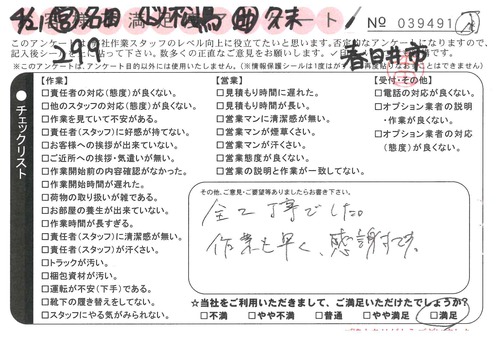 満足 ート
№ 039491
299
春日井市
このアンケートは当社作業スタッフのレベル向上に役立てたいと思います。否定的なアンケートになりますので、
記入後シールを上に貼って下さい。数多くの正直なご意見をお願いします。
※このアンケートは、アンケート目的以外には使用いたしません。
チェックリスト
【作業】
□責任者の対応(態度)が良くない。
□他のスタッフの対応(態度)が良くない。
□作業を見ていて不安がある。
□責任者(スタッフ)に好感が持てない。
□お客様への挨拶が出来ていない。
□ご近所への挨拶・気遣いが無い。
□作業開始前の内容確認がなかった。
□作業開始時間が遅れた。
□荷物の取り扱いが雑である。
□お部屋の養生が出来ていない。
□作業時間が長すぎる。
□責任者(スタッフ)に清潔感が無い。
□責任者(スタッフ)が汗くさい。
□トラックが汚い。
□梱包資材が汚い。
□運転が不安(下手)である。
□靴下の履き替えをしてない。
□スタッフにやる気がみられない。
【営業】
□見積もり時間に遅れた。
□見積もり時間が長い。
□営業マンに清潔感が無い。
□営業マンが煙草くさい。
□営業マンが汗くさい。
□営業態度が良くない。
□営業の説明と作業が一致してない。
【受付・その他】
□電話の対応が良くない。
□オプション業者の説明
・作業が良くない。
□オプション業者の対応
(態度)が良くない。
その他、ご意見・ご要望等ありましたらお書き下さい。
全て丁寧でした。
作業も早く、感謝です。
☆当社をご利用いただきまして、ご満足いただけたでしょうか?
□不満 □やや不満 □普通 □やや満足 □満足